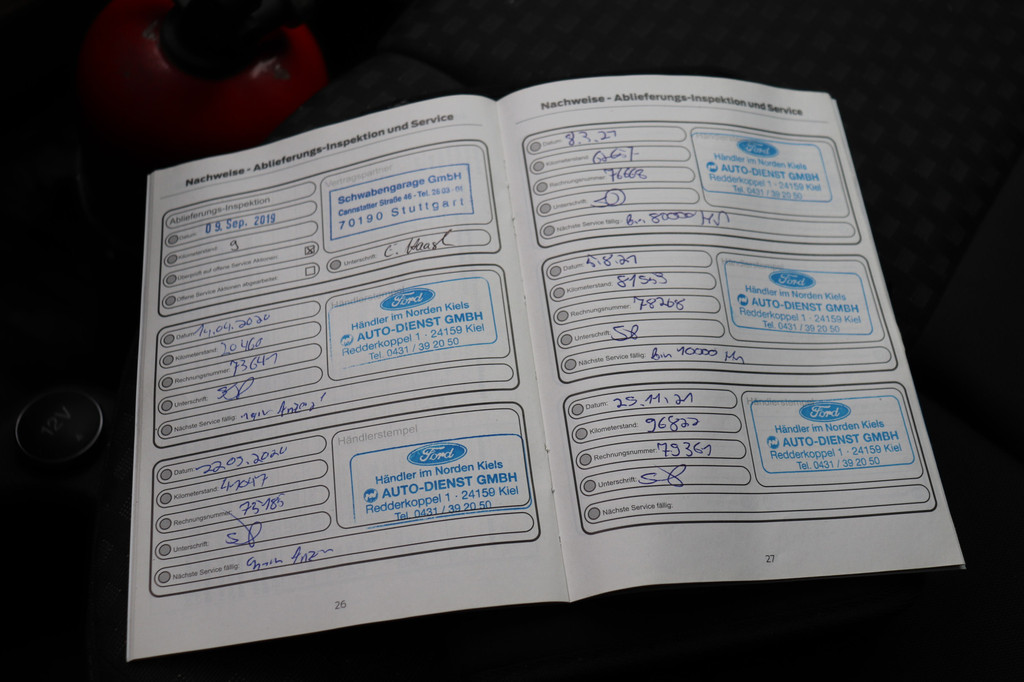 Nachweise - Ablieferungs-Inspektion und Service
Ablieferungs-Inspektion
Datum: 09. Sep. 2019
Kilometerstand: 9
Überprüft auf offene Service Aktionen
Offene Service Aktionen abgearbeitet
Vertragspartner
Schwabengarage GmbH
Cannstatter Straße 46 - Tel.
70190 Stuttgart
Unterschrift:
Datum: 14.04.2020
Kilometerstand: 20460
Rechnungsnummer: 73641
Unterschrift:
Nächste Service fällig:
Händlerstempel
Ford
Händler im Norden Kiels
AUTO-DIENST GMBH
Redderkoppel 1 · 24159 Kiel
Tel. 0431 / 39 20 50
Datum: 22.09.2020
Kilometerstand:
Rechnungsnummer: 75185
Unterschrift:
Nächste Service fällig:
Händlerstempel
Ford
Händler im Norden Kiels
AUTO-DIENST GMBH
Redderkoppel 1 · 24159 Kiel
Tel. 0431 / 39 20 50
26
Nachweise - Ablieferungs-Inspektion und Service
Datum: 8.3.21
Kilometerstand:
Rechnungsnummer: 76668
Unterschrift:
Nächste Service fällig: Bin 80000
Ford
Händler im Norden Kiels
AUTO-DIENST GMBH
Redderkoppel 1 · 24159 Kiel
Tel. 0431 / 39 20 50
Datum: 5.8.21
Kilometerstand: 81559
Rechnungsnummer: 78268
Unterschrift:
Nächste Service fällig: Bin 10000
Händlerstempel
Ford
Händler im Norden Kiels
AUTO-DIENST GMBH
Redderkoppel 1 · 24159 Kiel
Tel. 0431 / 39 20 50
Datum: 25.11.21
Kilometerstand: 96822
Rechnungsnummer: 79361
Unterschrift:
Nächste Service fällig:
Händlerstempel
Ford
Händler im Norden Kiels
AUTO-DIENST GMBH
Redderkoppel 1 · 24159 Kiel
Tel. 0431 / 39 20 50
27
12V